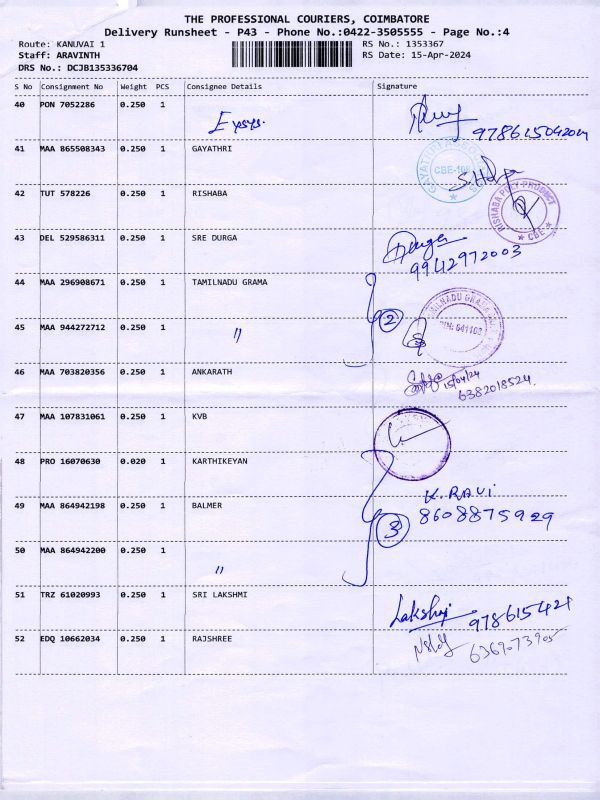 THE PROFESSIONAL COURIERS, COIMBATORE
Delivery Runsheet - P43 - Phone No.:0422-3505555 - Page No.:4
Route: KANUVAI 1 RS No.: 1353367
Staff: ARAVINTH RS Date: 15-Apr-2024
DRS No.: DCJB135336704
S No Consignment No Weight PCS Consignee Details Signature
40 PON 7052286 0.250 1
41 MAA 865508343 0.250 1 GAYATHRI
CBE
42 TUT 578226 0.250 1 RISHABA
RISHABA POLY PRODUCT
CBE
43 DEL 529586311 0.250 1 SRE DURGA
9942972003
44 MAA 296908671 0.250 1 TAMILNADU GRAMA
2
45 MAA 944272712 0.250 1 "
46 MAA 703820356 0.250 1 ANKARATH
15/04/24
6382018524
47 MAA 107831061 0.250 1 KVB
48 PRO 16070630 0.020 1 KARTHIKEYAN
K. RAVI
49 MAA 864942198 0.250 1 BALMER 8608875929
3
50 MAA 864942200 0.250 1 "
51 TRZ 61020993 0.250 1 SRI LAKSHMI
Lakshmi
52 EDQ 10662034 0.250 1 RAJSHREE